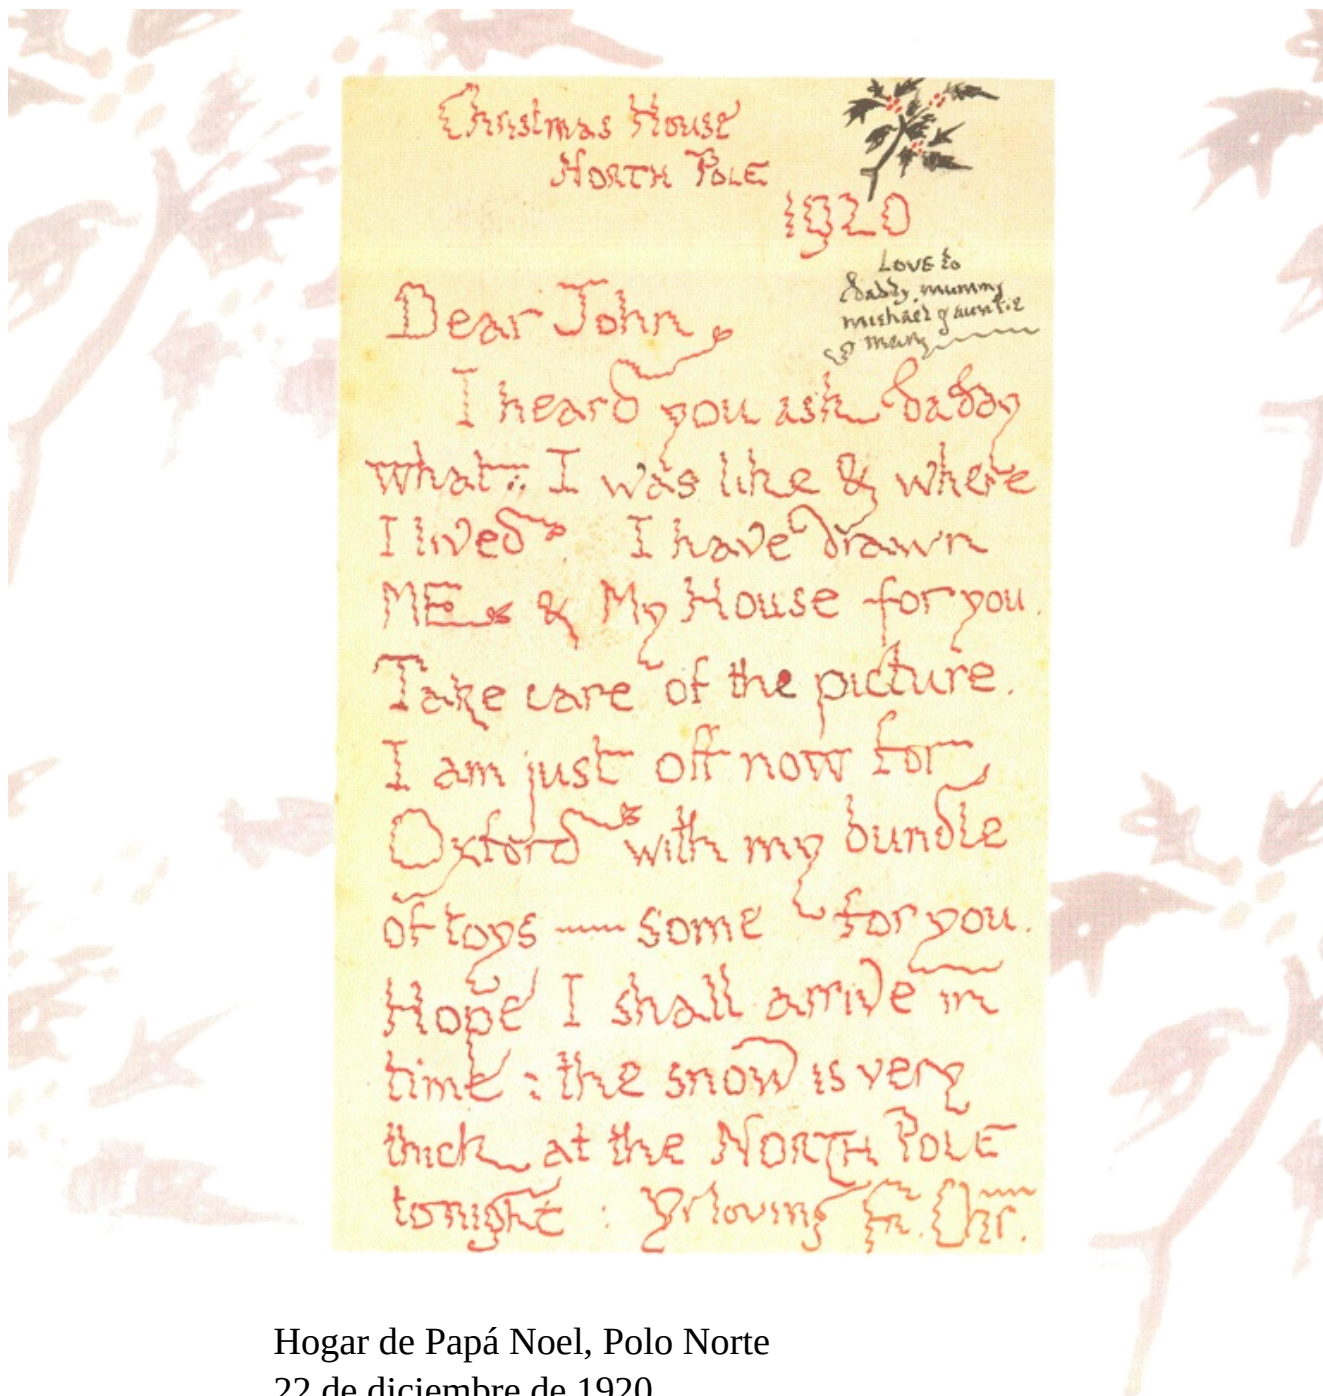 Christmas House
North Pole
1920
Love to
daddy, mummy
michael & auntie
mary
Dear John
I heard you ask daddy
what I was like & where
I lived. I have drawn
ME & My House for you.
Take care of the picture.
I am just off now for
Oxford with my bundle
of toys — some for you.
Hope I shall arrive in
time : the snow is very
thick at the NORTH POLE
tonight : Yr loving Fr. Chr.
Hogar de Papá Noel, Polo Norte
22 de diciembre de 1920